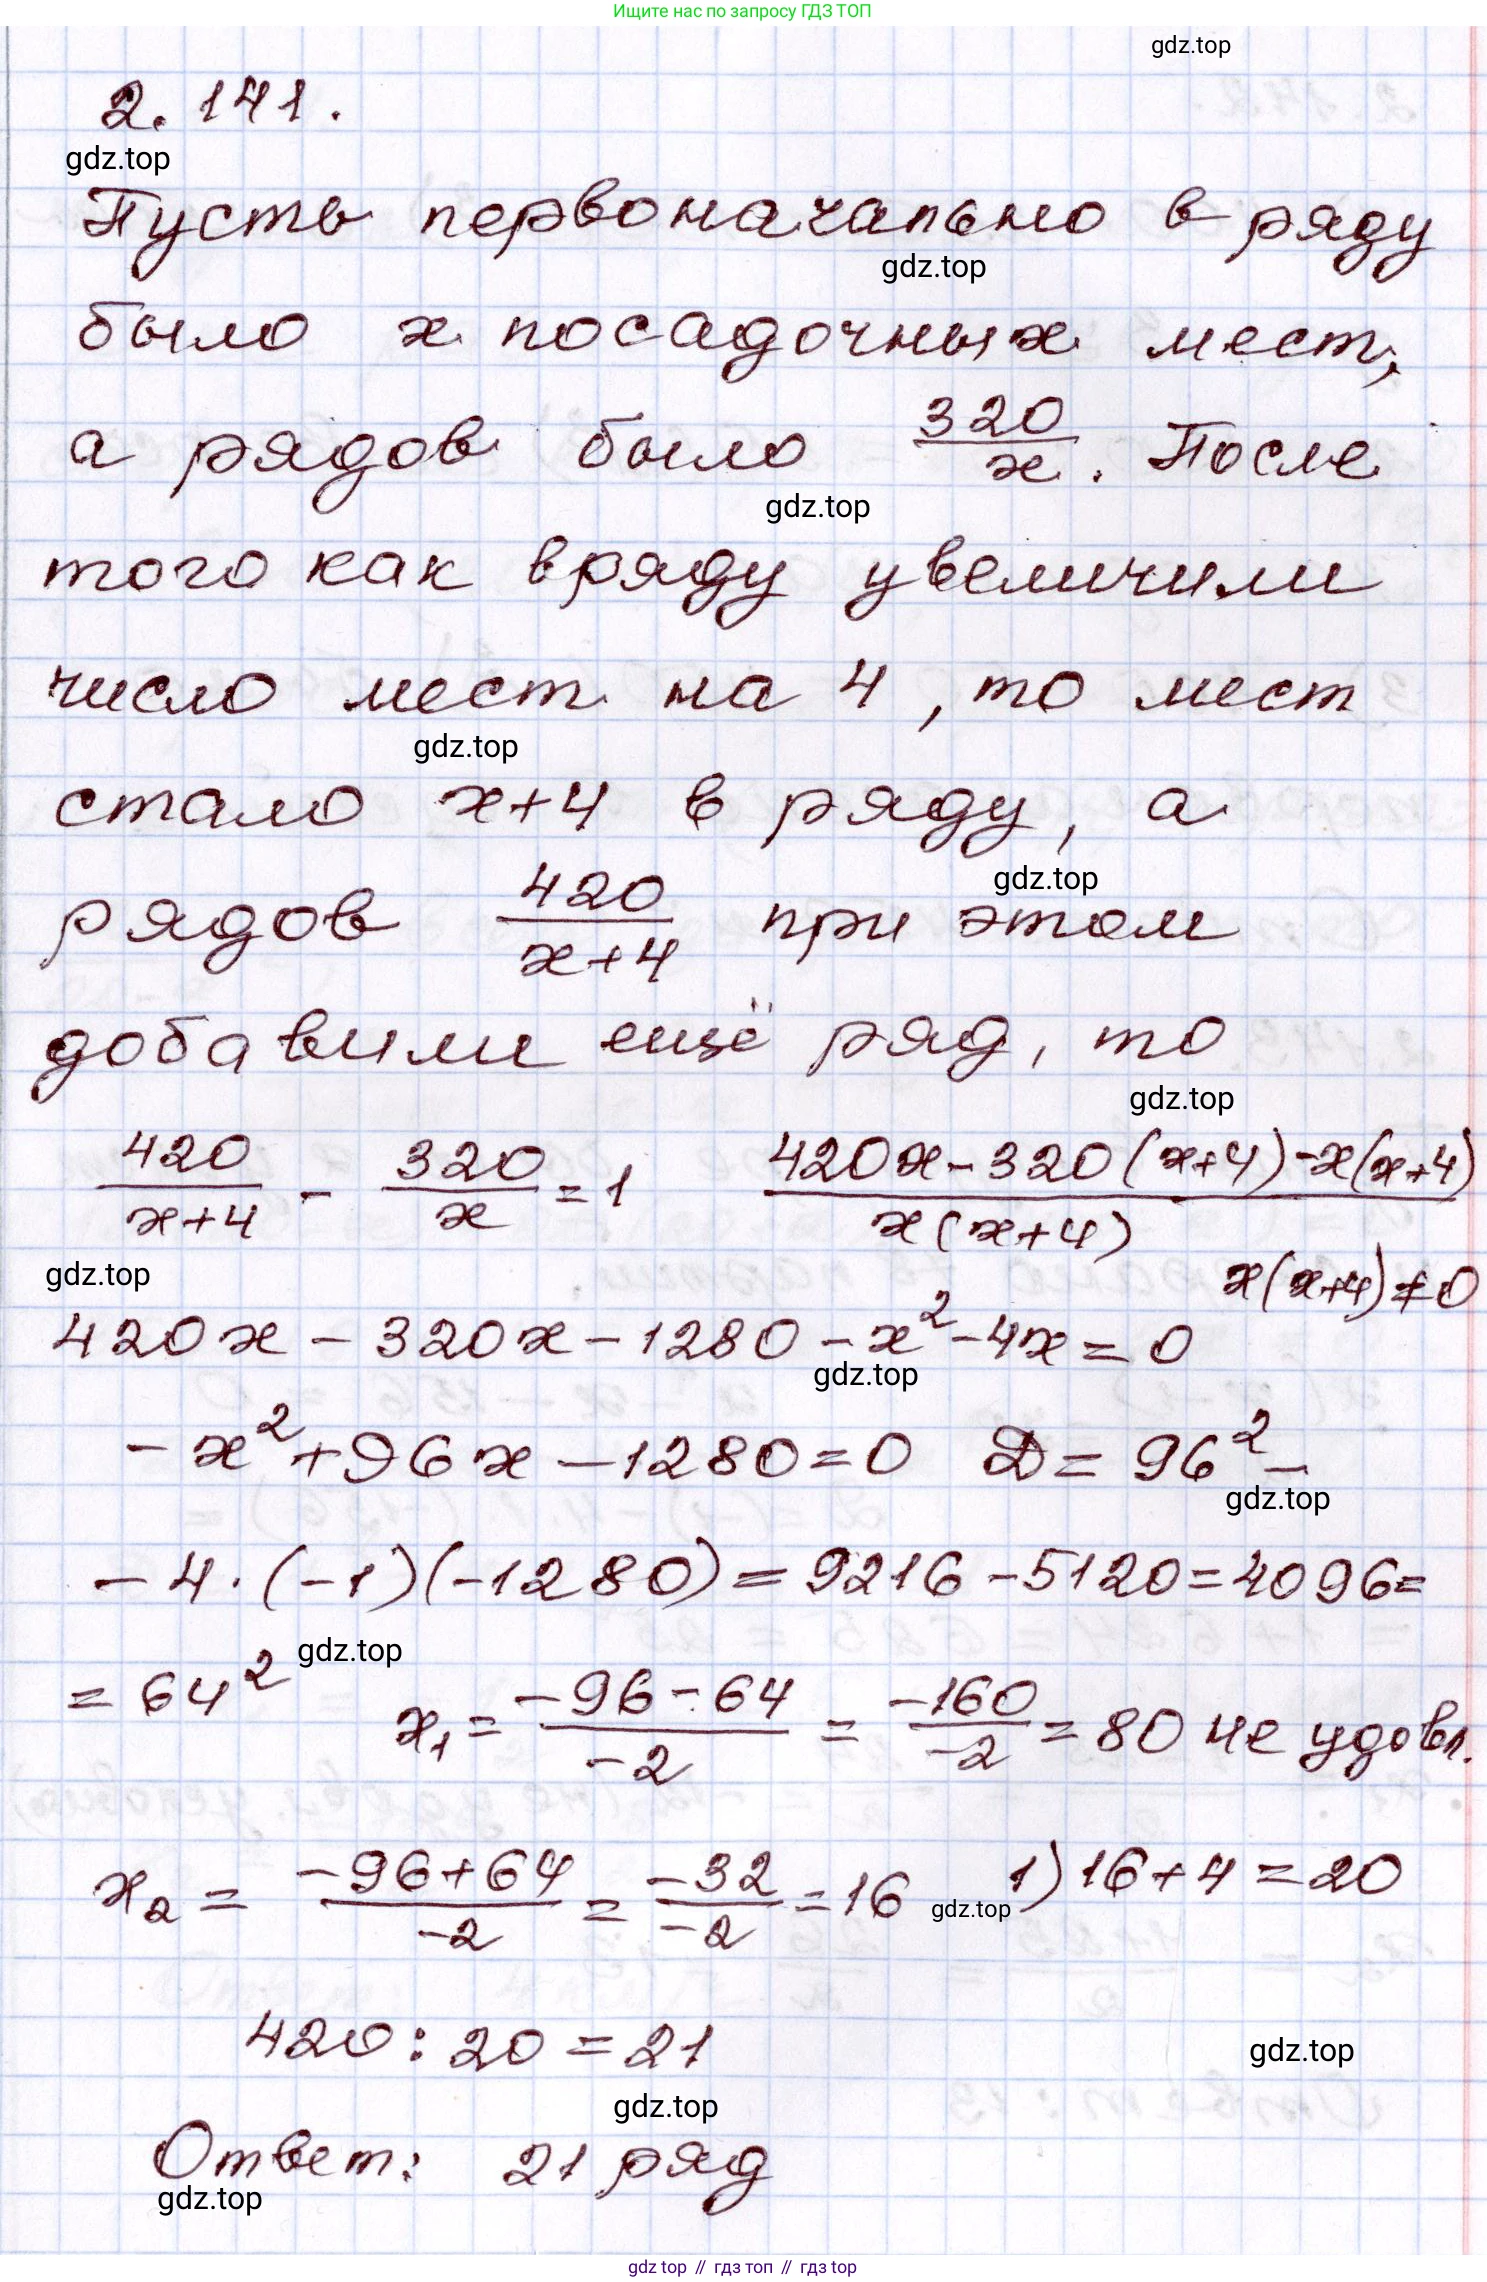 Ищите нас по запросу ГДЗ ТОП
gdz.top
2.141.
gdz.top
Пусть первоначально в ряду
gdz.top
было x посадочных мест,
а рядов было 320/x. После
gdz.top
того как в ряду увеличили
число мест на 4, то мест
gdz.top
стало x+4 в ряду, а
gdz.top
рядов 420/(x+4) при этом
добавили ещё ряд, то
gdz.top
420/(x+4) - 320/x = 1 (420x-320(x+4)-x(x+4))/(x(x+4))
gdz.top
x(x+4)≠0
420x - 320x - 1280 - x² - 4x = 0
gdz.top
-x² + 96x - 1280 = 0 D = 96² -
gdz.top
- 4·(-1)(-1280) = 9216 - 5120 = 4096 =
gdz.top
= 64² x₁ = (-96-64)/(-2) = (-160)/(-2) = 80 не удовл.
x₂ = (-96+64)/(-2) = (-32)/(-2) = 16 1) 16+4=20
gdz.top
420 : 20 = 21
gdz.top
gdz.top
Ответ: 21 ряд
gdz.top
gdz top // гдз топ // gdz top